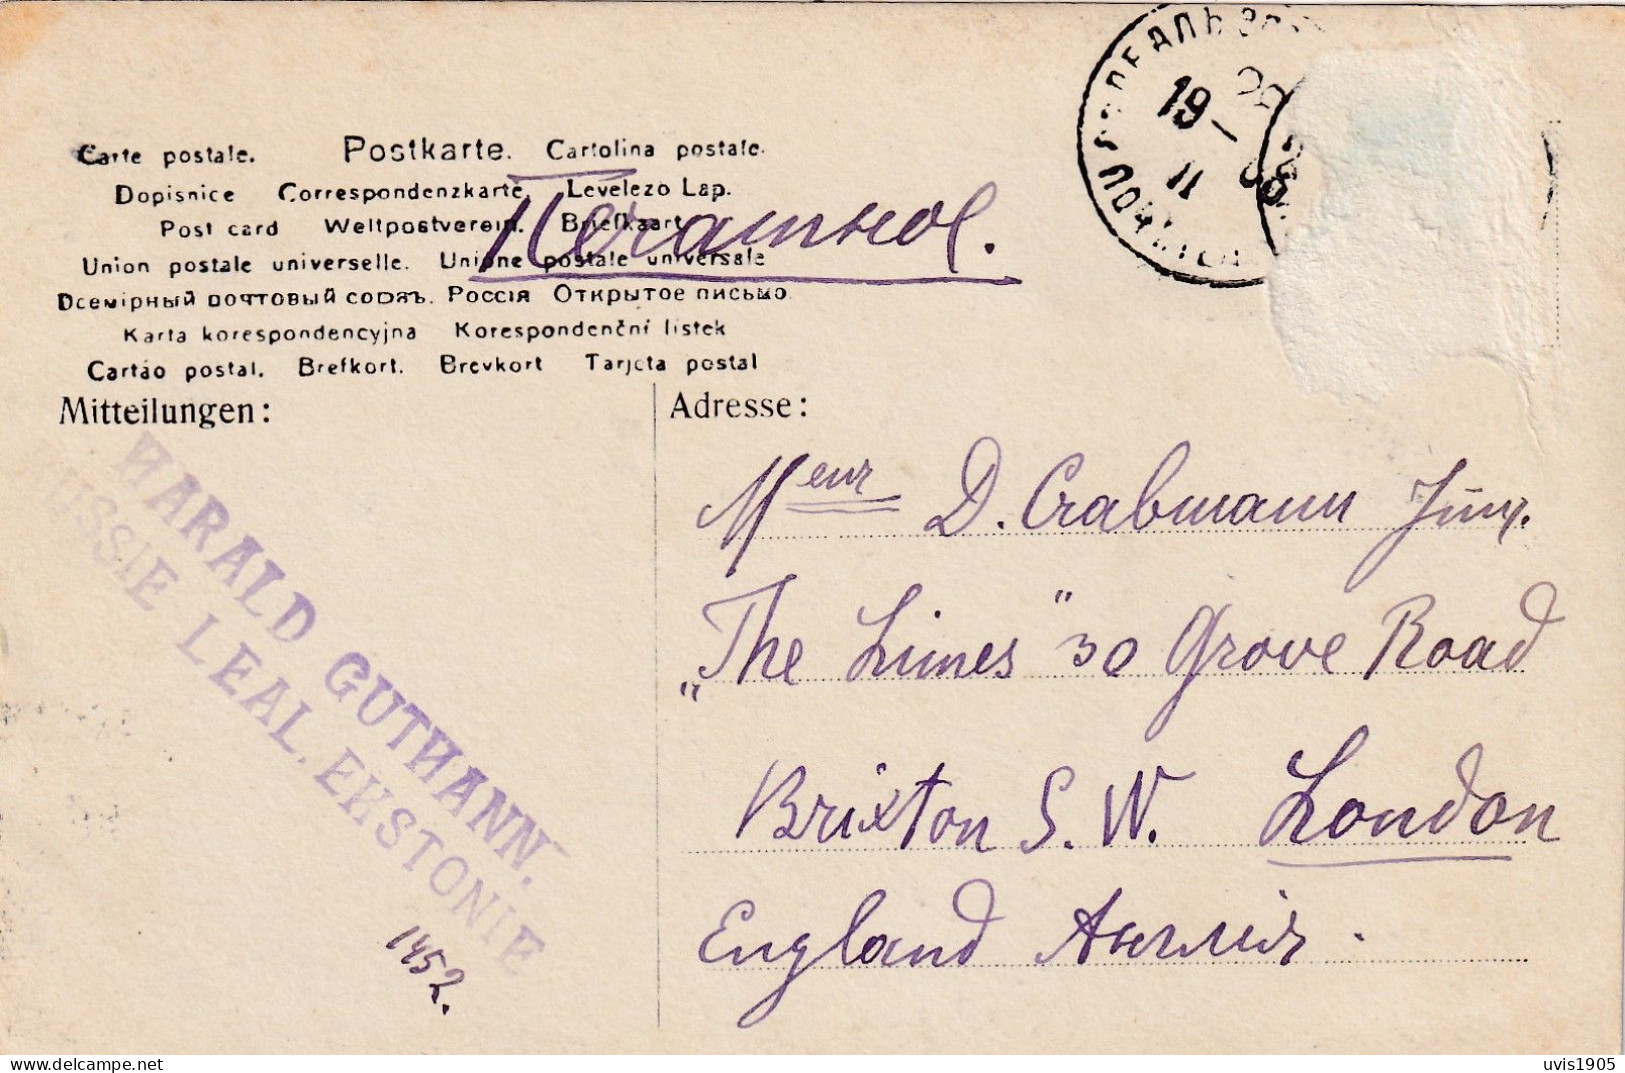 Carte postale. Postkarte. Cartolina postale.
Dopisnice Correspondenzkarte. Levelezo Lap.
Post card Weltpostverein. Briefkaart
Union postale universelle. Unione postale universale
Всемірный почтовый союзъ. Россія Открытое письмо
Karta korespondencyjna Korespondenční listek
Cartão postal. Brefkort. Brevkort Tarjeta postal
Печатное.
19
11
Mitteilungen:
Adresse:
HARALD GUTMANN.
RUSSIE LEAL. EHSTONIE
1452.
Meur D. Crabmann Jun.
„The Limes" 30 Grove Road
Brixton S. W. London
England Англія.
uvis1905